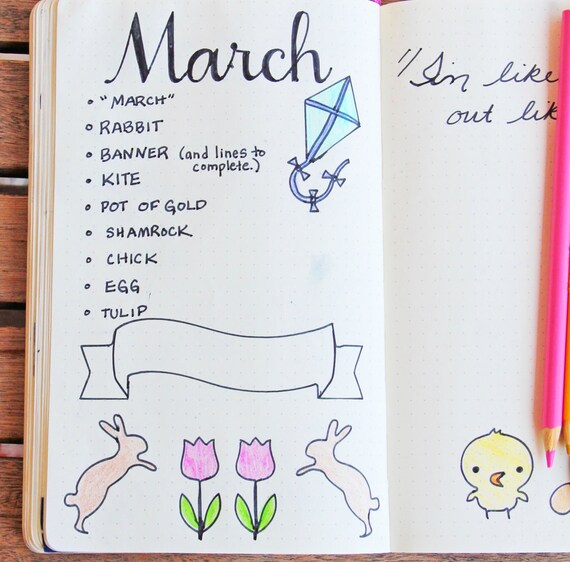 March
• "MARCH"
• RABBIT
• BANNER (and lines to complete.)
• KITE
• POT OF GOLD
• SHAMROCK
• CHICK
• EGG
• TULIP
"In like
out lik